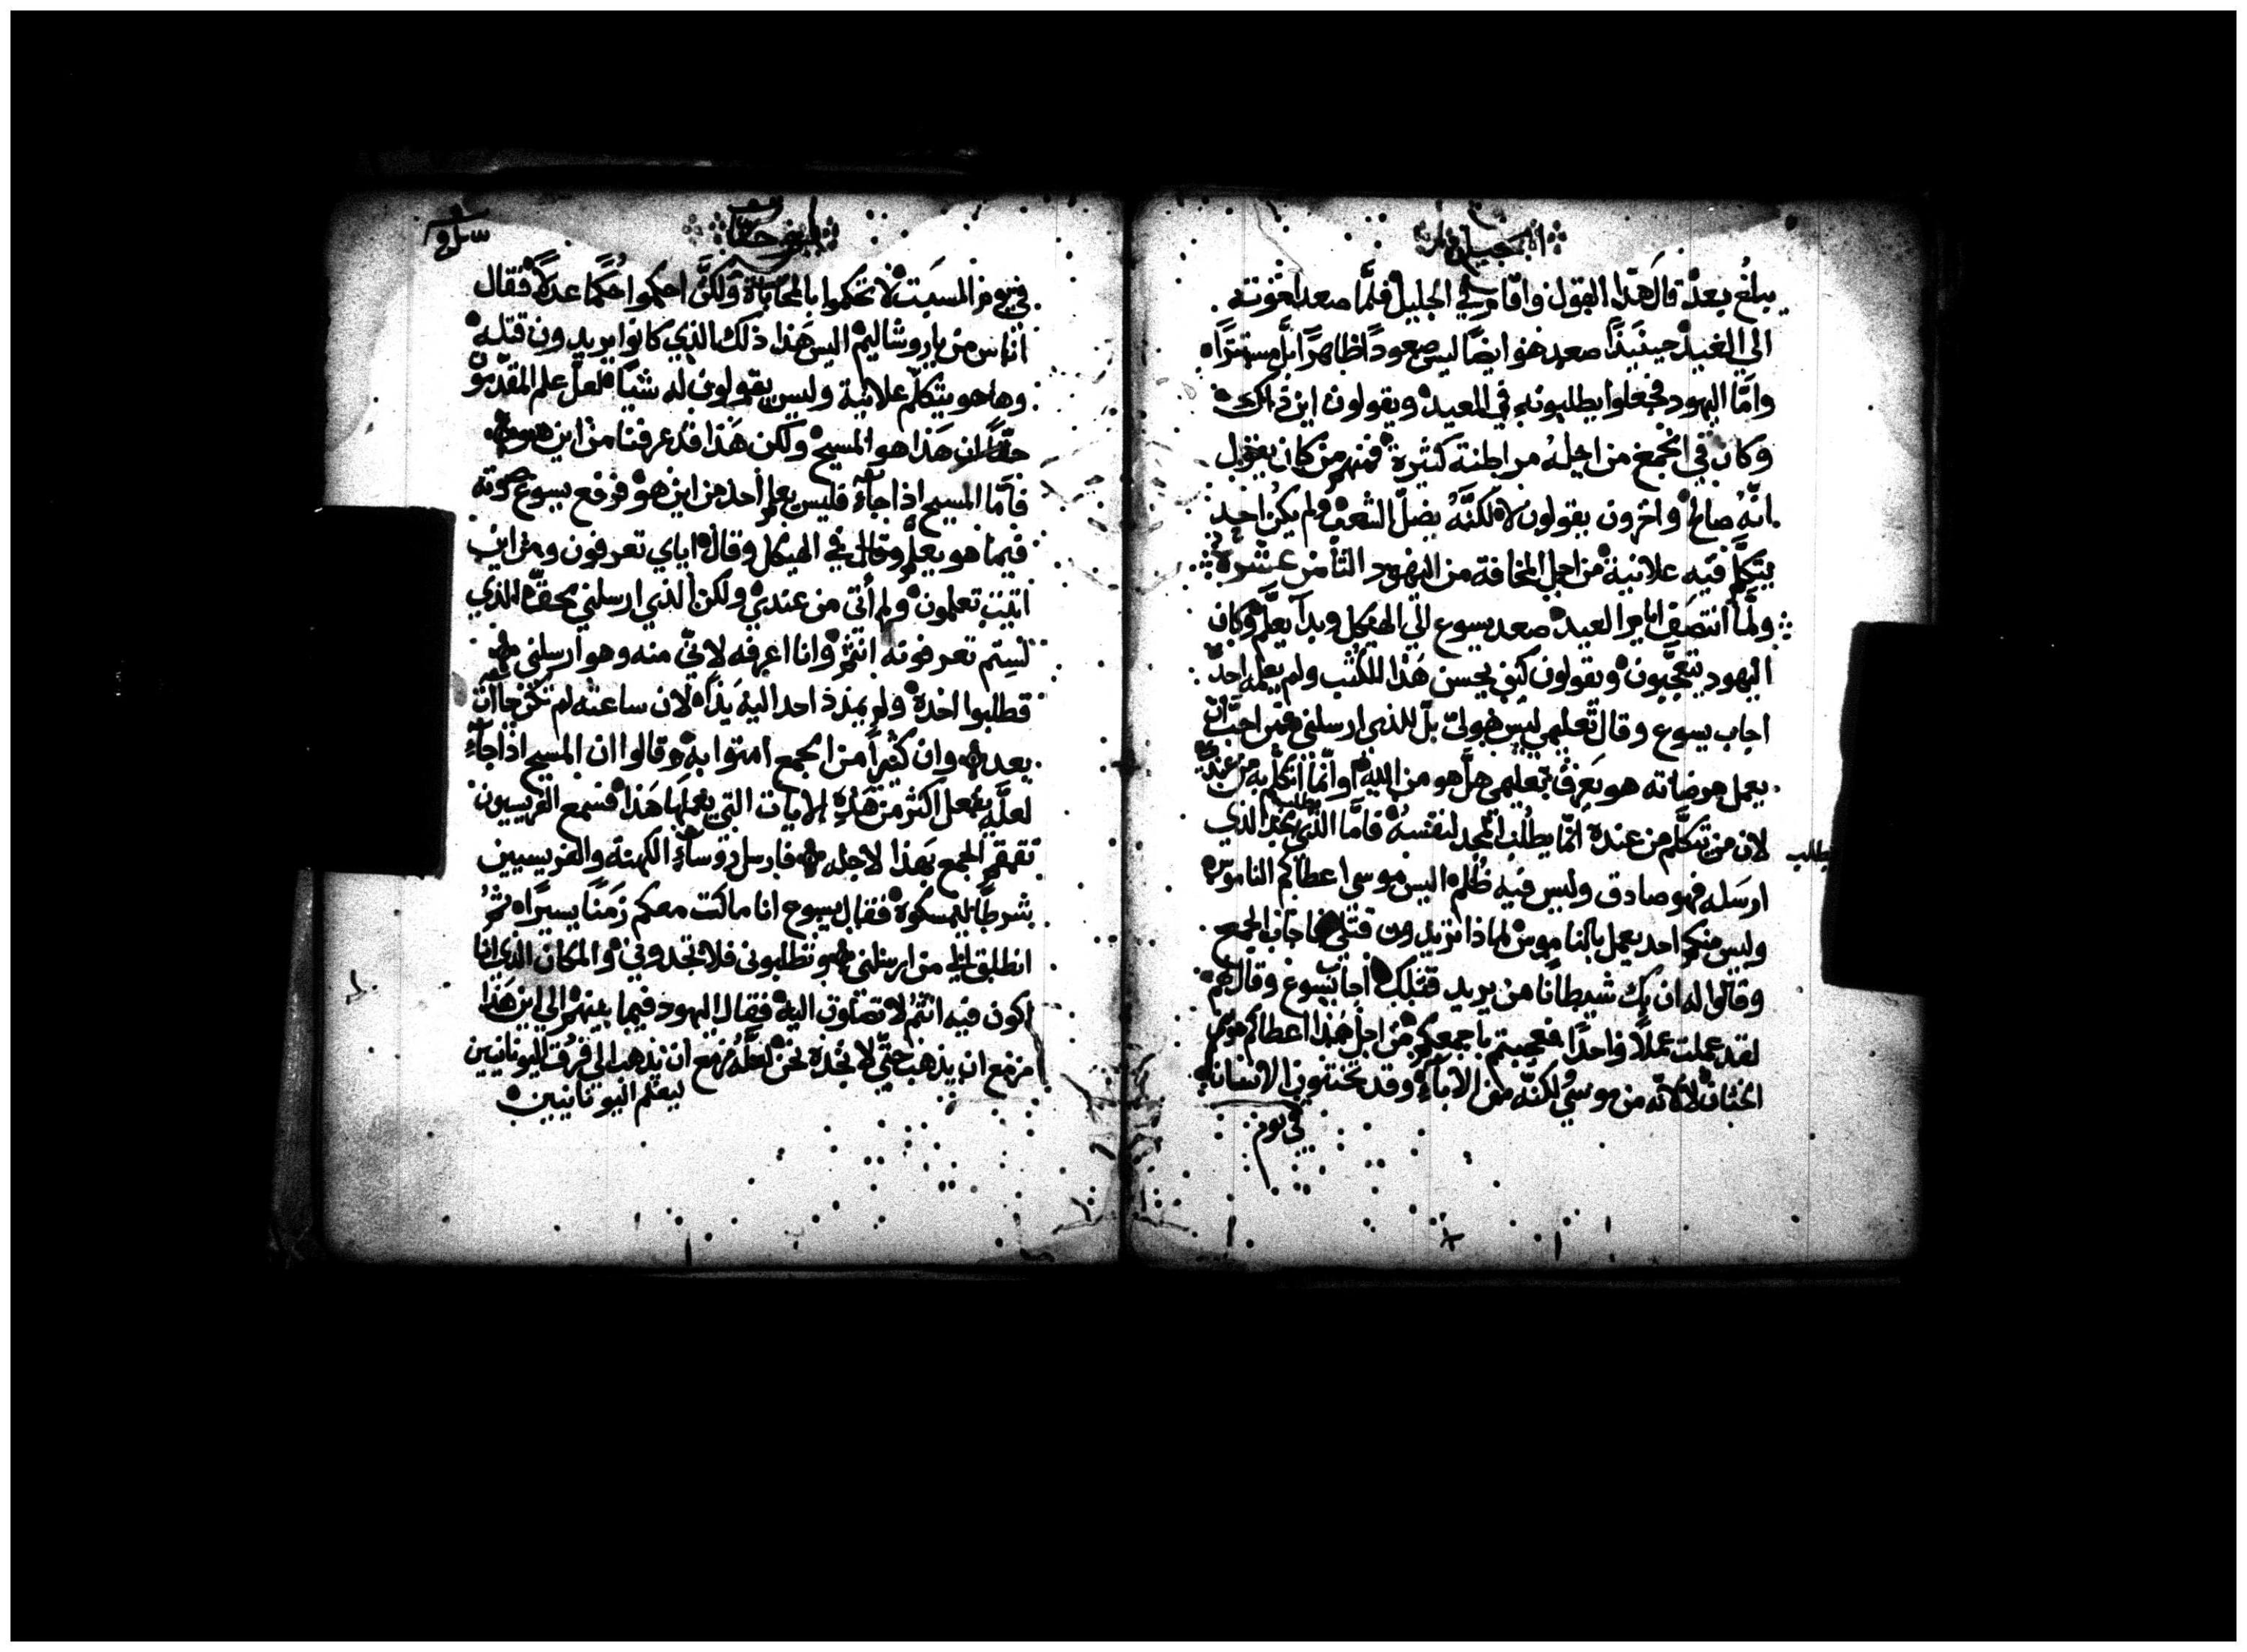 انجيل
يبلغ بعد قال هذا القول واقام في الجليل فلما صعد اخوته
الي العيد حينيذ صعد هو ايضا ليس صعودا ظاهرا بل مستترا
واما اليهود فجعلوا يطلبونه في العيد ويقولون اين ذاك
وكان في الجمع من اجله مراطنة كثيرة فمنهم من كان يقول
انه صالح واخرون يقولون لا لكنه يضل الشعب ولم يكن احد
يتكلم فيه علانية من اجل المخافة من اليهود الثامن عشر
ولما انتصف ايام العيد صعد يسوع الي الهيكل وبدا يعلم وكان
اليهود يتعجبون ويقولون كيف يحسن هذا الكتب ولم يعلمه احد
اجاب يسوع وقال تعليمي ليس هو لي بل للذي ارسلني فمن احب ان
يعمل مرضاته هو يعرف تعليمي هل هو من الله او انما اتكلم به من عندي
لان من يتكلم من عنده انما يطلب المجد لنفسه فاما الذي يطلب مجد الذي
يطلب
ارسله فهو صادق وليس فيه ظلم اليس موسي اعطاكم الناموس
وليس منكم احد يعمل بالناموس لماذا تريدون قتلي فاجاب الجمع
وقالوا له ان بك شيطانا من يريد قتلك اجاب يسوع وقال لهم
لقد عملت عملا واحدا فعجبتم باجمعكم من اجل هذا اعطاكم موسي
الختان لا لانه من موسي لكنه من الاباء وقد تختنون الانسان
في يوم
يوحنا
في يوم السبت لا تحكموا بالمحاباة ولكن احكموا حكما عدلا فقال
اناس من ياروشاليم اليس هذا ذلك الذي كانوا يريدون قتله
وها هو يتكلم علانية وليس يقولون له شيا لعل علم المقدمون
حقا ان هذا هو المسيح ولكن هذا قد عرفنا من اين هو
فاما المسيح اذا جاء فليس يعلم احد من اين هو فرفع يسوع صوته
فيما هو يعلم وقال في الهيكل وقال اياي تعرفون ومن اين
اتيت تعلمون ولم اتي من عندي ولكن الذي ارسلني محق الذي
لستم تعرفونه انتم وانا اعرفه لاني منه وهو ارسلني
فطلبوا اخذه ولم يمدد احد اليه يدا لان ساعته لم تكن جاات
بعد وان كثيرا من الجمع امنوا به وقالوا ان المسيح اذا جاء
لعله يفعل اكثر من هذه الايات التي يفعلها هذا فسمع الفريسيون
تقمقم الجمع بهذا لاجله فارسل روساء الكهنة والفريسيين
شرطا ليمسكوه فقال يسوع انا ماكث معكم زمنا يسيرا ثم
انطلق الي من ارسلني وتطلبوني فلا تجدوني والمكان الذي انا
اكون فيه انتم لا تصلون اليه فقال اليهود فيما بينهم الي اين هذا
مزمع ان يذهب حتي لا نجده نحن لعله مزمع ان يذهب الي فرقة اليونانيين
ليعلم اليونانيين